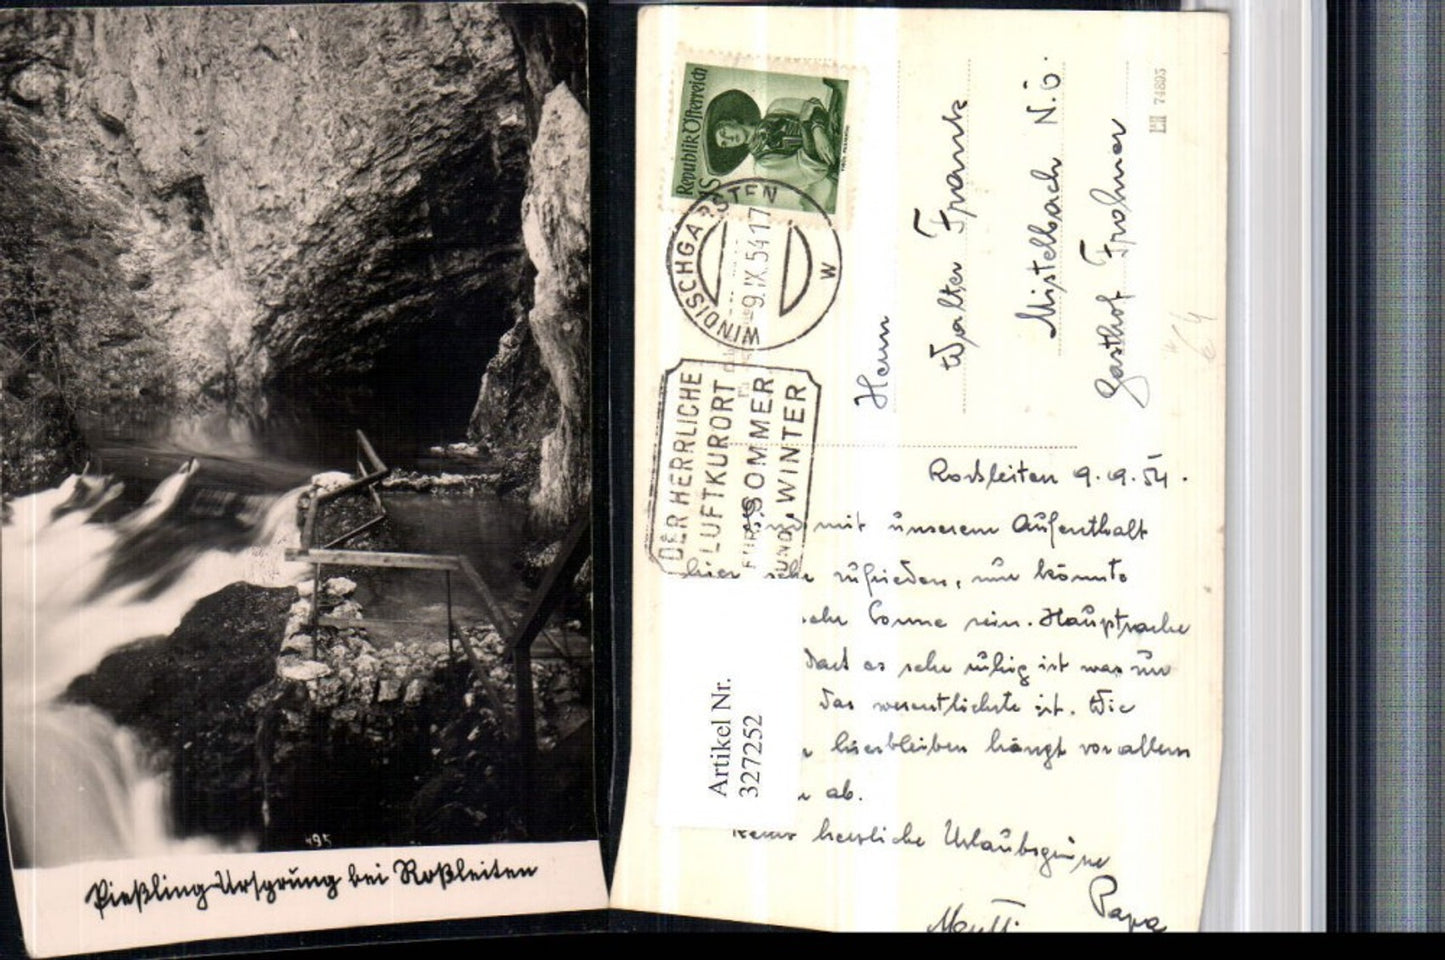 495
Pießling-Ursprung bei Roßleiten
Republik Österreich
1S
WINDISCHGARSTEN
-9.IX.54 17
W
DER HERRLICHE
LUFTKURORT
FÜR SOMMER
UND WINTER
EH 74895
Herrn
Walter Frank
Mistelbach N.Ö.
Gasthof Frohner
Rossleiten 9.9.54.
mit unserem Aufenthalt
hier sehr zufrieden, nur könnte
mehr Sonne sein. Hauptsache
dass es sehr ruhig ist was nur
das wesentlichste ist. Wie
hierbleiben hängt vor allem
ab.
herzliche Urlaubsgrüsse
Papa
Mutti
Artikel Nr.
327252